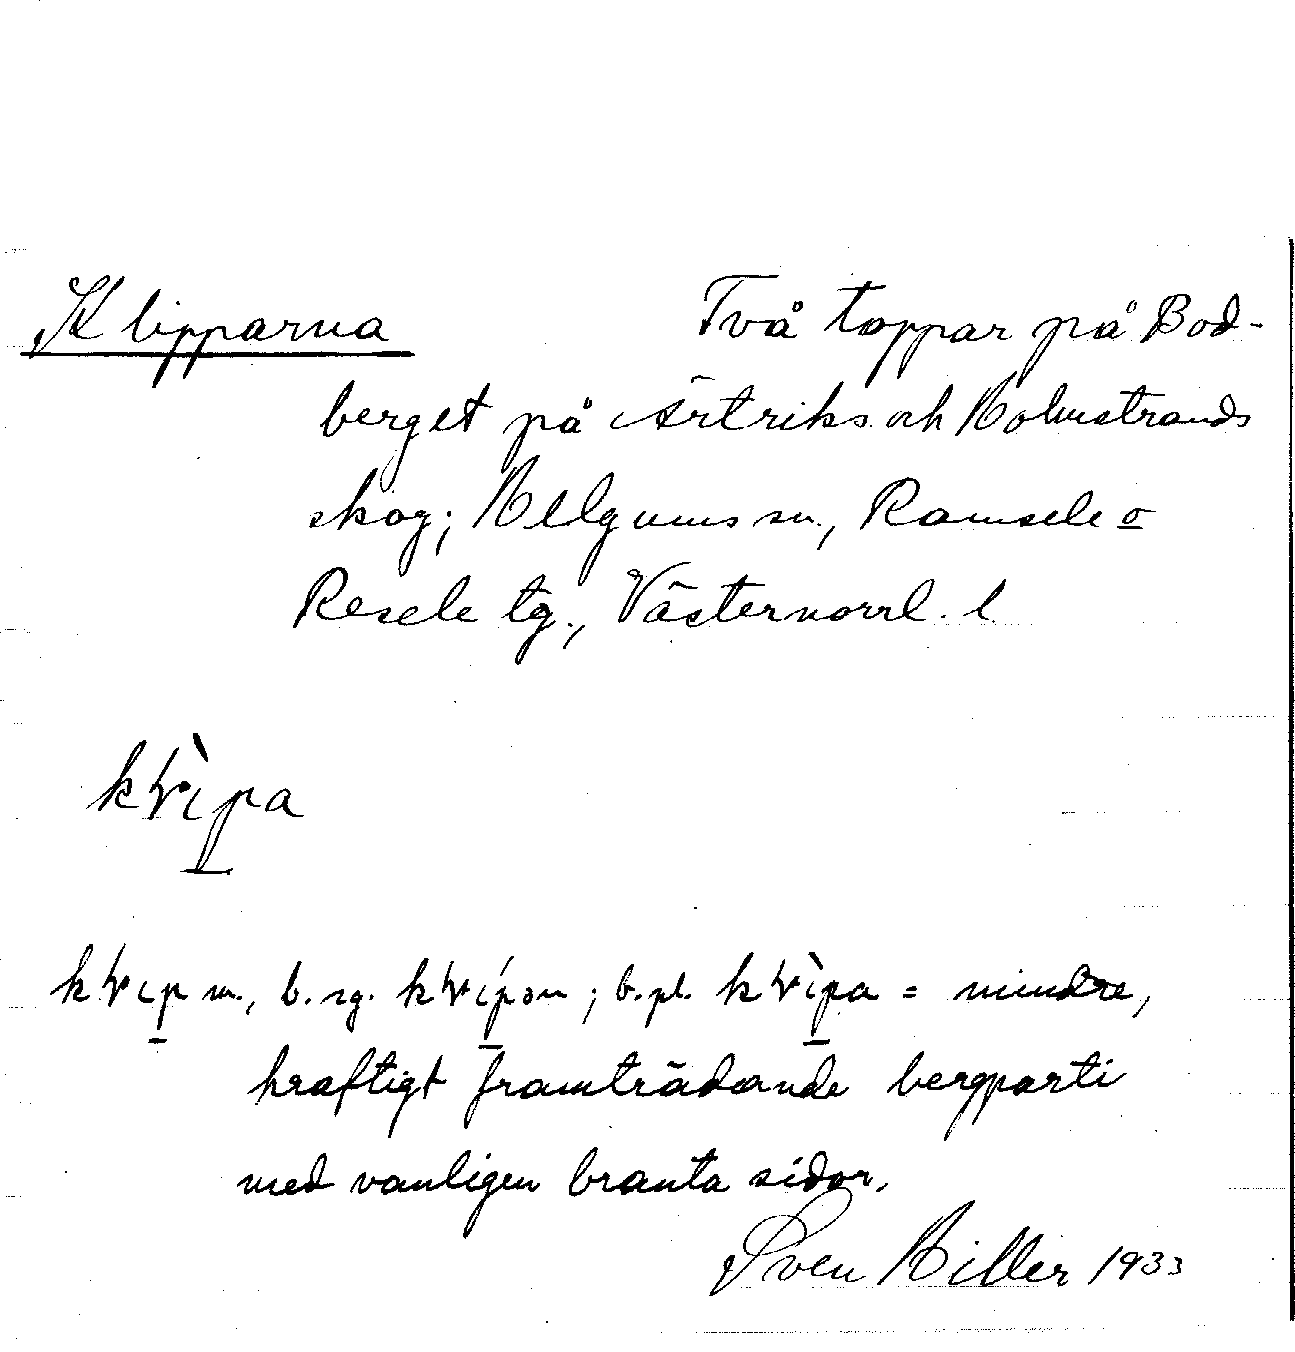 Klipparna Två toppar på Bod-
berget på Ärtriks och Holmstrands
skog; Helgums sn., Ramsele o
Resele tg., Västernorrl. l
m., b. sg. ; b. pl. = mindre,
kraftigt framträdande bergparti
med vanligen branta sidor.
Sven Hiller 1933